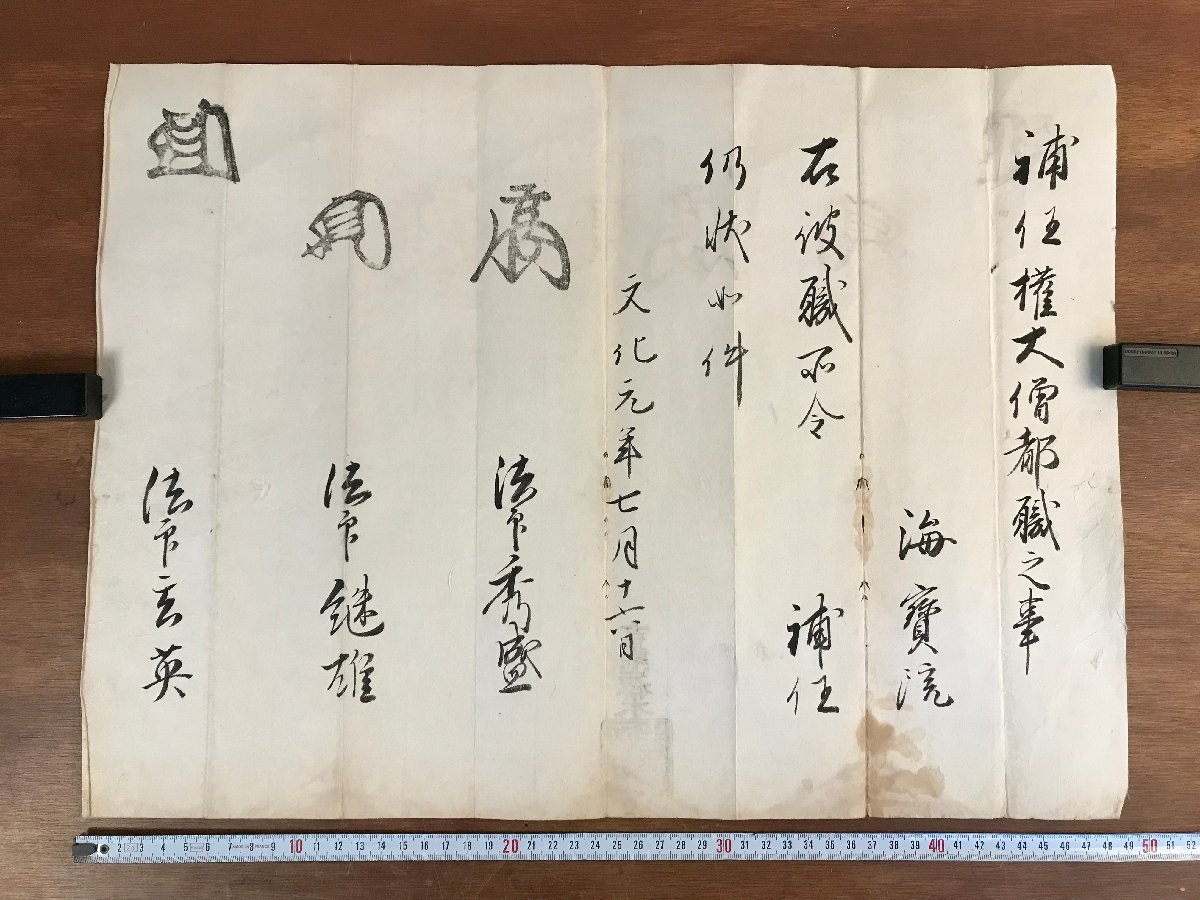 補任權大僧都職之事
海寶院
右彼職所令 補任
仍状如件
文化元年七月十六日
法印秀盛
法印継雄
法印玄英